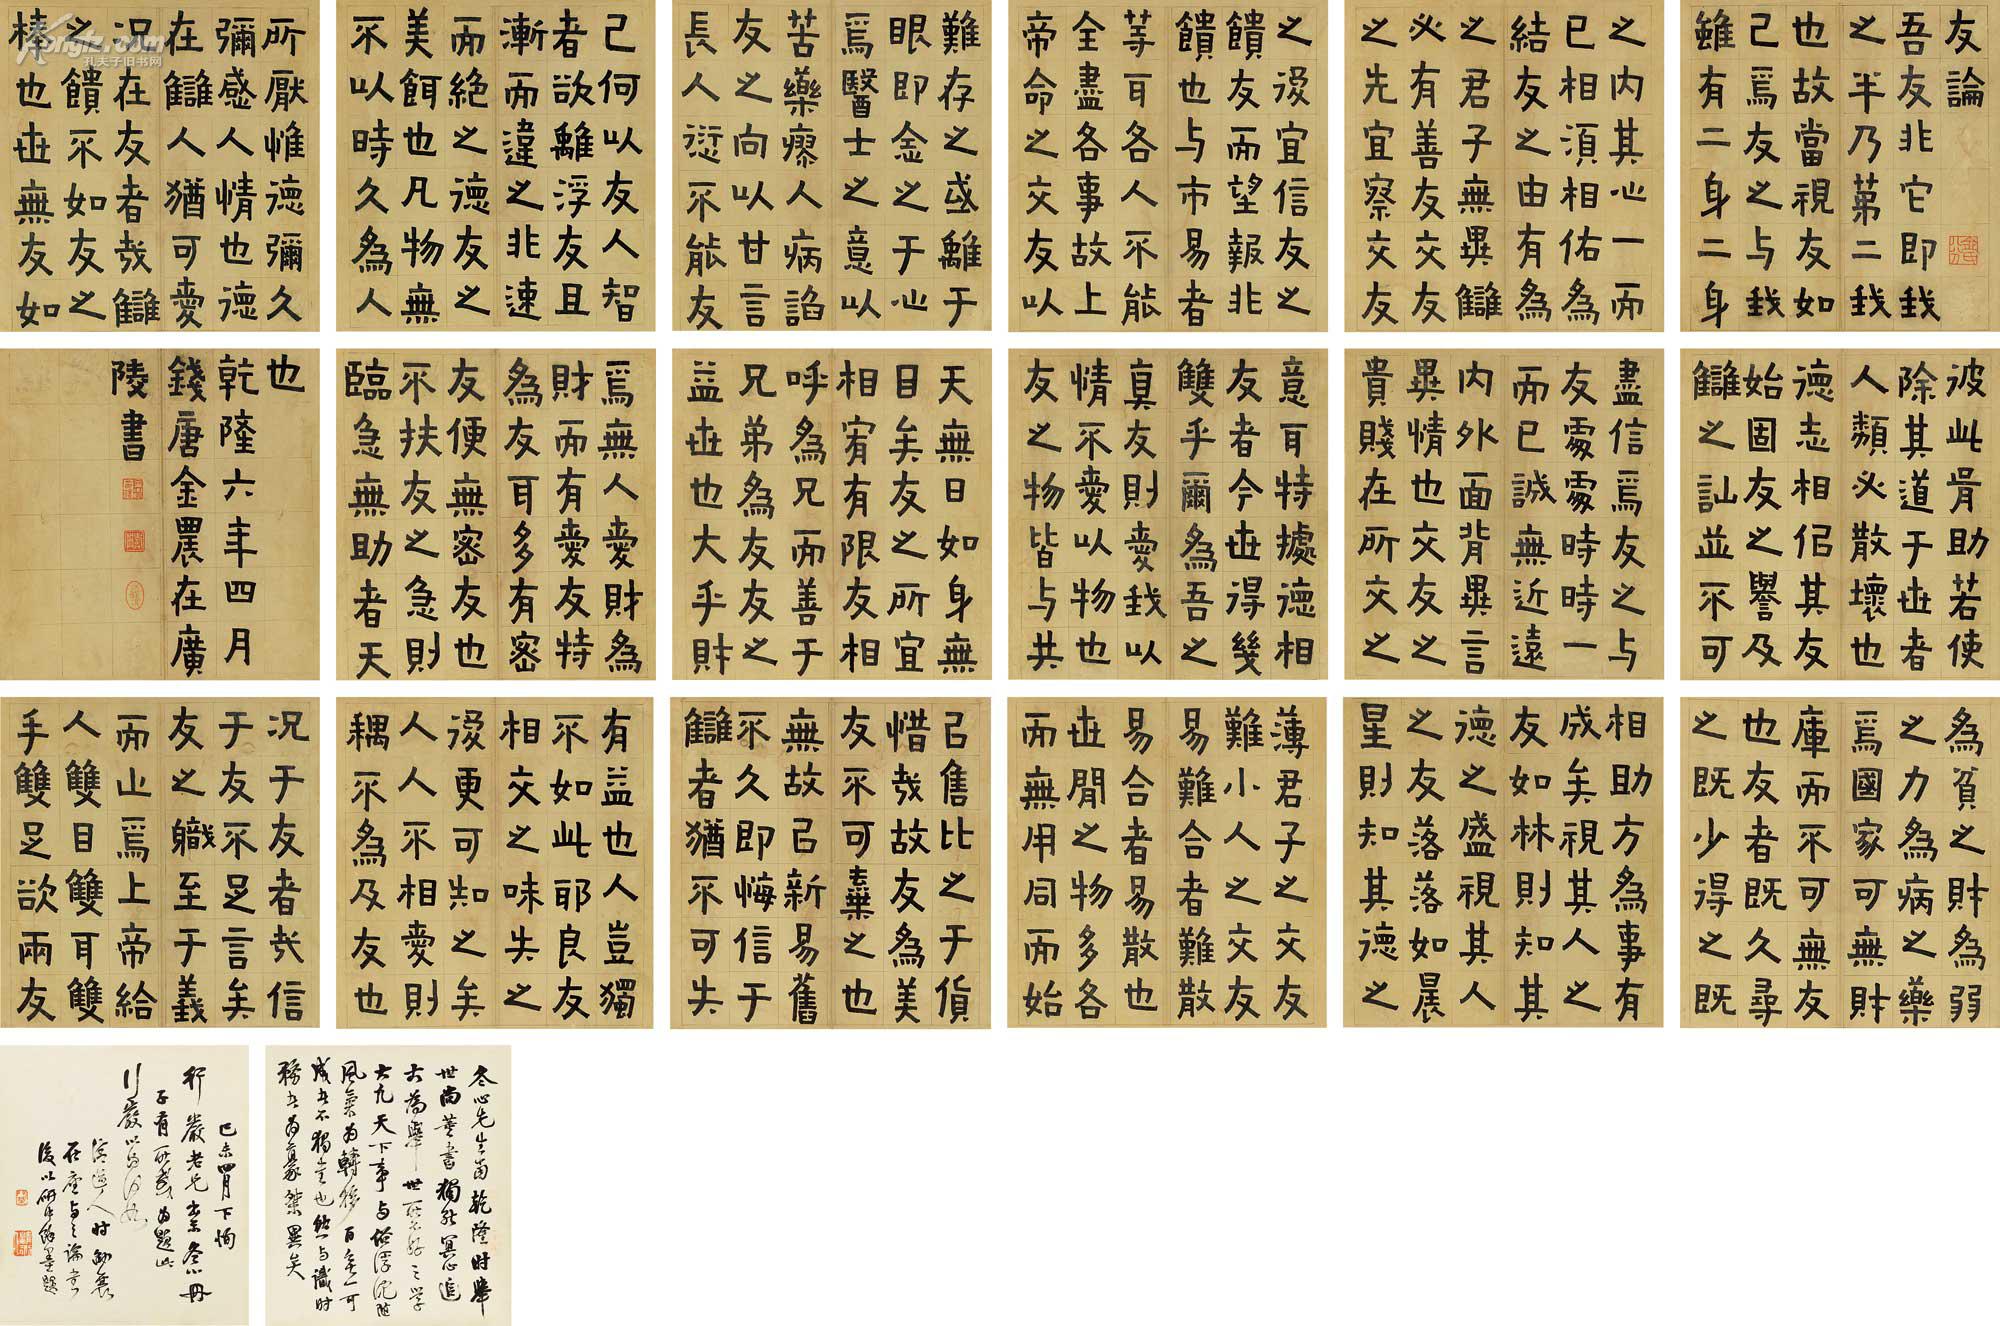 友論
吾友非它即我
之半乃第二我
也故當視友如
己焉友之与我
雖有二身二身
之内其心一而
已相須相佑為
結友之由有為
之君子無異讎
必有善友交友
之先宜察交友
之後宜信友之
饋友而望報非
饋也与市易者
等耳各人不能
全盡各事故上
帝命之交友以
難存之或離于
眼即念之于心
焉醫士之意以
苦藥瘳人病諂
友之向以甘言
長人愆不能友
己何以友人智
者欲離浮友且
漸而違之非速
而絶之德友之
美餌也凡物無
不以時久為人
所厭惟德彌久
彌感人情也德
在讎人猶可愛
況在友者哉讎
之饋不如友之
棒也世無友如
彼此胥助若使
除其道于世者
人類必散壞也
德志相侶其友
始固友之譽及
讎之訕並不可
盡信焉友之与
友處處時時一
而已誠無近遠
内外面背異言
異情也交友之
貴賤在所交之
意耳特據德相
友者今世得幾
雙乎爾為吾之
真友則愛我以
情不愛以物也
友之物皆与共
天無日如身無
目矣友之所宜
相宥有限友相
呼為兄而善于
兄弟為友友之
益世也大乎財
焉無人愛財為
財而有愛友特
為友耳多有密
友便無密友也
不扶友之急則
臨急無助者天
也
乾隆六年四月
錢唐金農在廣
陵書
為貧之財為弱
之力為病之藥
焉國家可無財
庫而不可無友
也友者既久尋
之既少得之既
相助方為事有
成矣視其人之
友如林則知其
德之盛視其人
之友落落如晨
星則知其德之
薄君子之交友
難小人之交友
易難合者難散
易合者易散也
世間之物多各
而無用同而始
己售比之于貨
惜哉故友為美
友不可棄之也
無故己新易舊
不久即悔信于
讎者猶不可失
有益也人豈獨
不如此耶良友
相交之味失之
後更可知之矣
人人不相愛則
耦不為及友也
況于友者哉信
于友不足言矣
友之職至于義
而止焉上帝給
人雙目雙耳雙
手雙足欲兩友
冬心先生當乾隆時舉
世尚董書獨能冥心追
古為舉世所不好之學
凡天下事与俗浮沉隨
風氣為轉移百無一可
成者不獨書也然与識時
務者為豪傑異矣
己未四月下恂
行嚴老兄出示冬心冊
子有所感為題此
行嚴以為何如
道人時
在座与之論書
後以研中餘墨題
孔夫子旧书网